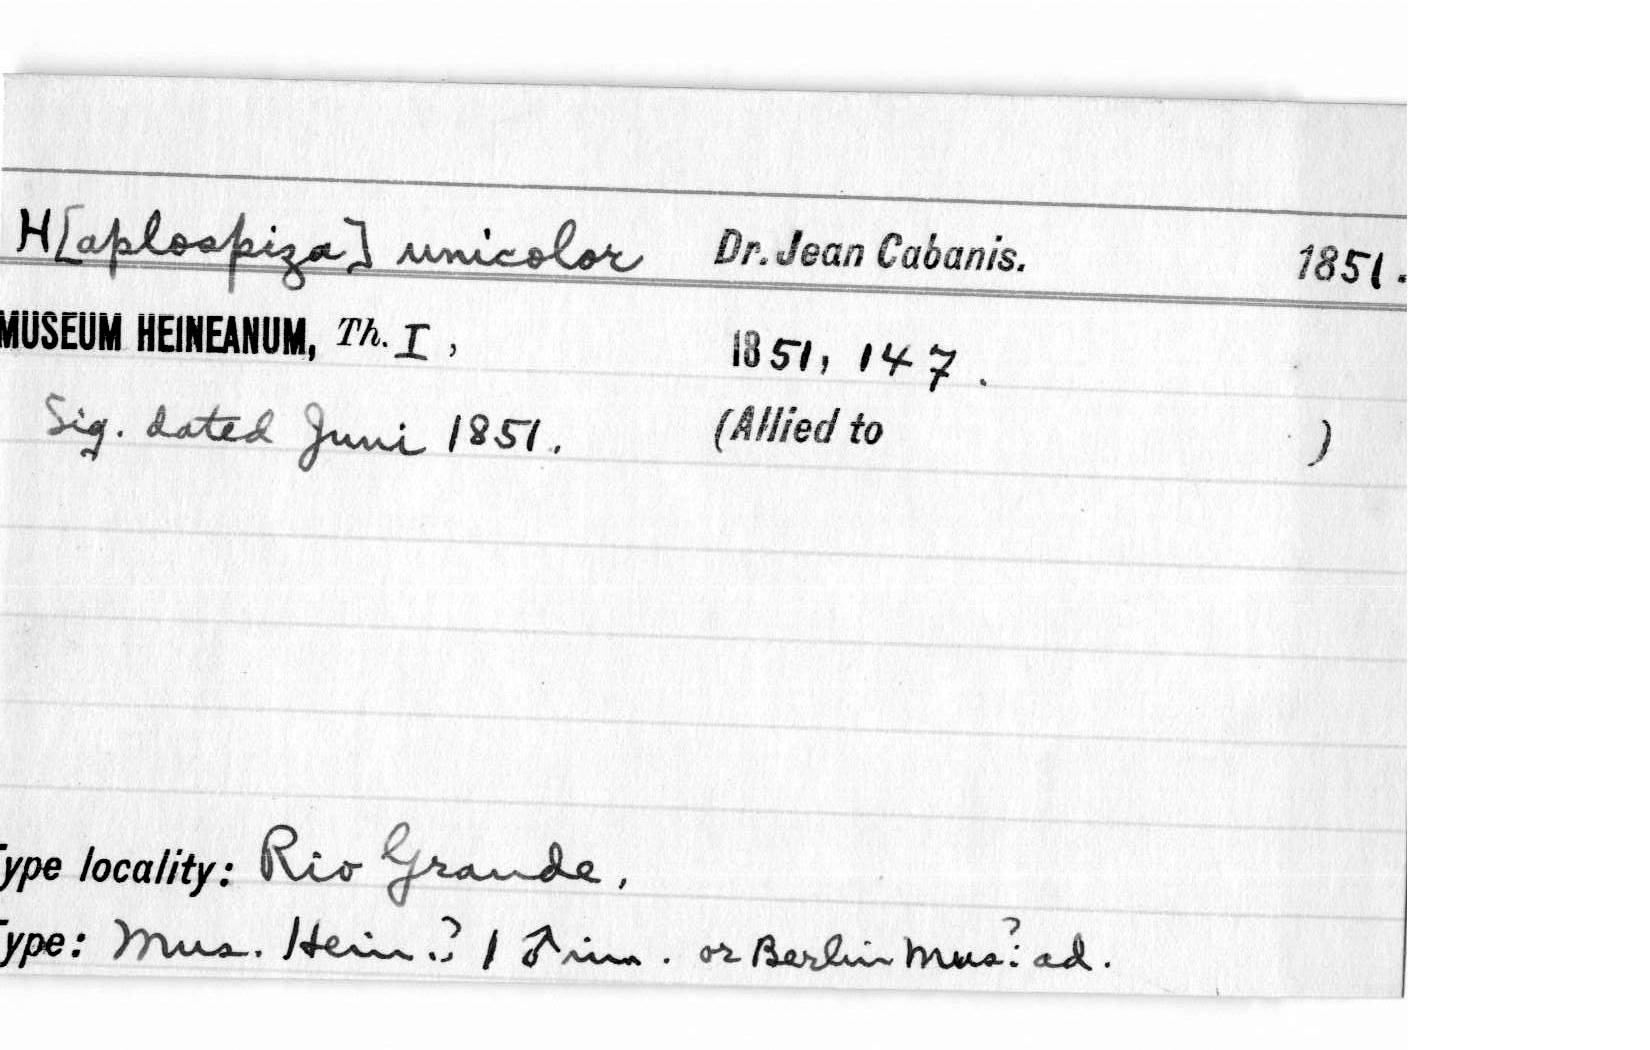 H[aplospiza] unicolor Dr. Jean Cabanis. 1851.
MUSEUM HEINEANUM, Th. I, 1851, 147.
Sig. dated Juni 1851. (Allied to )
Type locality: Rio Grande,
Type: Mus. Hein.? 1 ♂ im. or Berlin Mus.? ad.